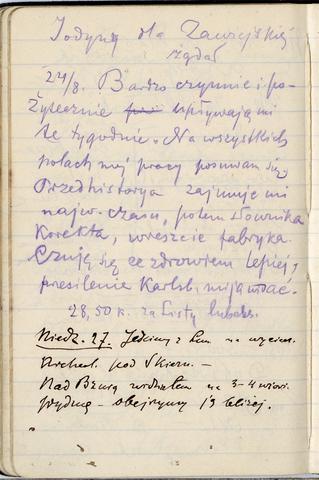 Jodynę dla Zawrejskiej
zgdał
24/8. Bardzo czynnie i po-
żytecznie upływają mi
te tygodnie. Na wszystkich
polach mej pracy posuwam się
Przedhistorya zajmuje mi
najw. czasu, potem słownika
Korekta, wreszcie fabryka.
Czuję się ze zdrowiem lepiej,
przesilenie Karlsb. mija mać.
28,50 k. za Listy lubels.
Niedz. 27. Jeździmy z na
Archeol. pod Skiern. –
Nad Bzurą widziałem na 3-4
wydmę – obejrzymy ją bliżej.